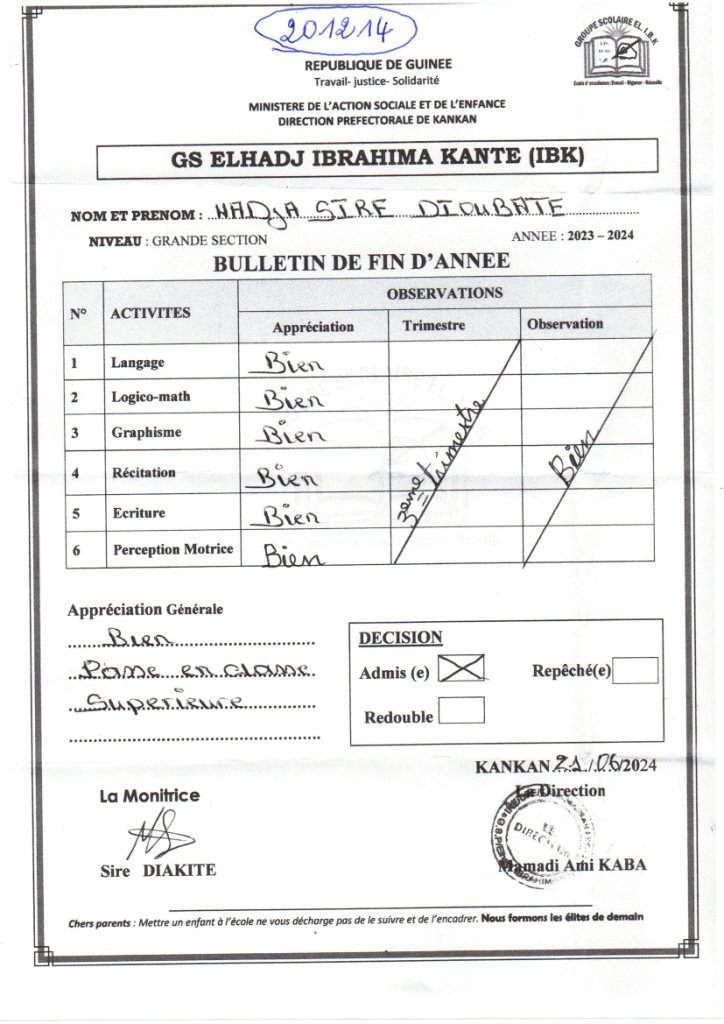 201214
GROUPE SCOLAIRE EL. I.B.K
Ecole d'excellence :Travail - Rigueur - Réussite
REPUBLIQUE DE GUINEE
Travail- justice- Solidarité
MINISTERE DE L'ACTION SOCIALE ET DE L'ENFANCE
DIRECTION PREFECTORALE DE KANKAN
GS ELHADJ IBRAHIMA KANTE (IBK)
NOM ET PRENOM : NADJA SIRE DIOUBATE
NIVEAU : GRANDE SECTION ANNEE : 2023 – 2024
BULLETIN DE FIN D'ANNEE
N° ACTIVITES OBSERVATIONS
Appréciation Trimestre Observation
1 Langage Bien
2 Logico-math Bien
3 Graphisme Bien
4 Récitation Bien
5 Ecriture Bien
6 Perception Motrice Bien
3eme trimestre
Bien
Appréciation Générale
Bien
Passe en classe
Superieure
DECISION
Admis (e) Repêché(e)
Redouble
KANKAN 21/06/2024
La Monitrice
La Direction
LE
Sire DIAKITE
Mamadi Ami KABA
Chers parents : Mettre un enfant à l'école ne vous décharge pas de le suivre et de l'encadrer. Nous formons les élites de demain